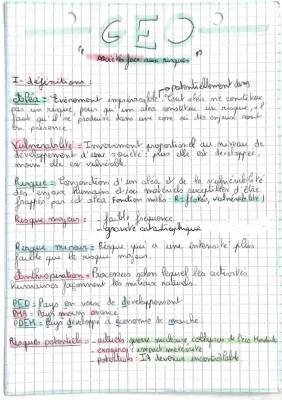 GEO
"sociétés face aux risques"
I- définitions :
potentiellement dang
Aléa : Evènement imprévisible. Tout aléa ne constitue
pas un risque, pour qu'un aléa constitue un risque, il
faut qu'il se produise dans une zone où des enjeux sont
en présence.
Vulnérabilité : Inversement proportionnel au niveau de
développement d'une société : plus elle est développée,
moins elle est vulnérable.
Risque = Conjonction d'un aléa et de la vulnérabilité
des espaces humains et/ou matériels susceptibles d'être
frappés par cet aléa. Fonction maths : R = f(aléa, vulnérabilité)
Risque majeur : - faible fréquence
- gravité catastrophique
Risque mineur = Risque qui a une intensité plus
faible que le risque majeur.
Anthropisation = Processus selon lequel les activités
humaines façonnent les milieux naturels.
PED = Pays en voie de développement
PMA = Pays moins avancé
PDEM = Pays développé à économie de marché
Risques potentiels : - actuels : guerre nucléaire, collapsus de l'éco Mondiale
- exogènes : impact météorite
- potentiels : IA devenue incontrôlable.